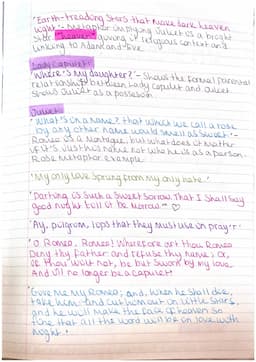 "Earth-treading Stars that make dark heaven
light"- Metaphor implying Juliet is a bright
Star. "heaven" giving it religious context and
linking to Adam and Eve.
Lady Capulet:
"Where's my daughter?"- Shows the formal parental
relationship between Lady Capulet and Juliet
Shows Juliet as a possesion
Juliet
"What's in a name? that which we call a rose
by any other name would smell as sweet."-
Romeo is a Montague, but what does it matter
it's just his name, not who he is as a person.
Rose Metaphor example.
'My only love Sprung from my only hate.'
'Parting is Such a Sweet Sorrow, That I Shall Say
good night till it be Morrow.'" ♡
'Ay, pilgrom, lops that they must use in pray'r'
'O Romeo, Romeo! Wherefore art thou Romeo
Deny thy Father and refuse thy name; Or,
if thou wilt not, be but Sworn by my love,
And I'll no longer be a Capulet!
'Give me my Romeo; and, When he shall die,
take him and cut him out in little Stars,
and he will make the face of heaven So
fine that all the world will be in love with
night.'